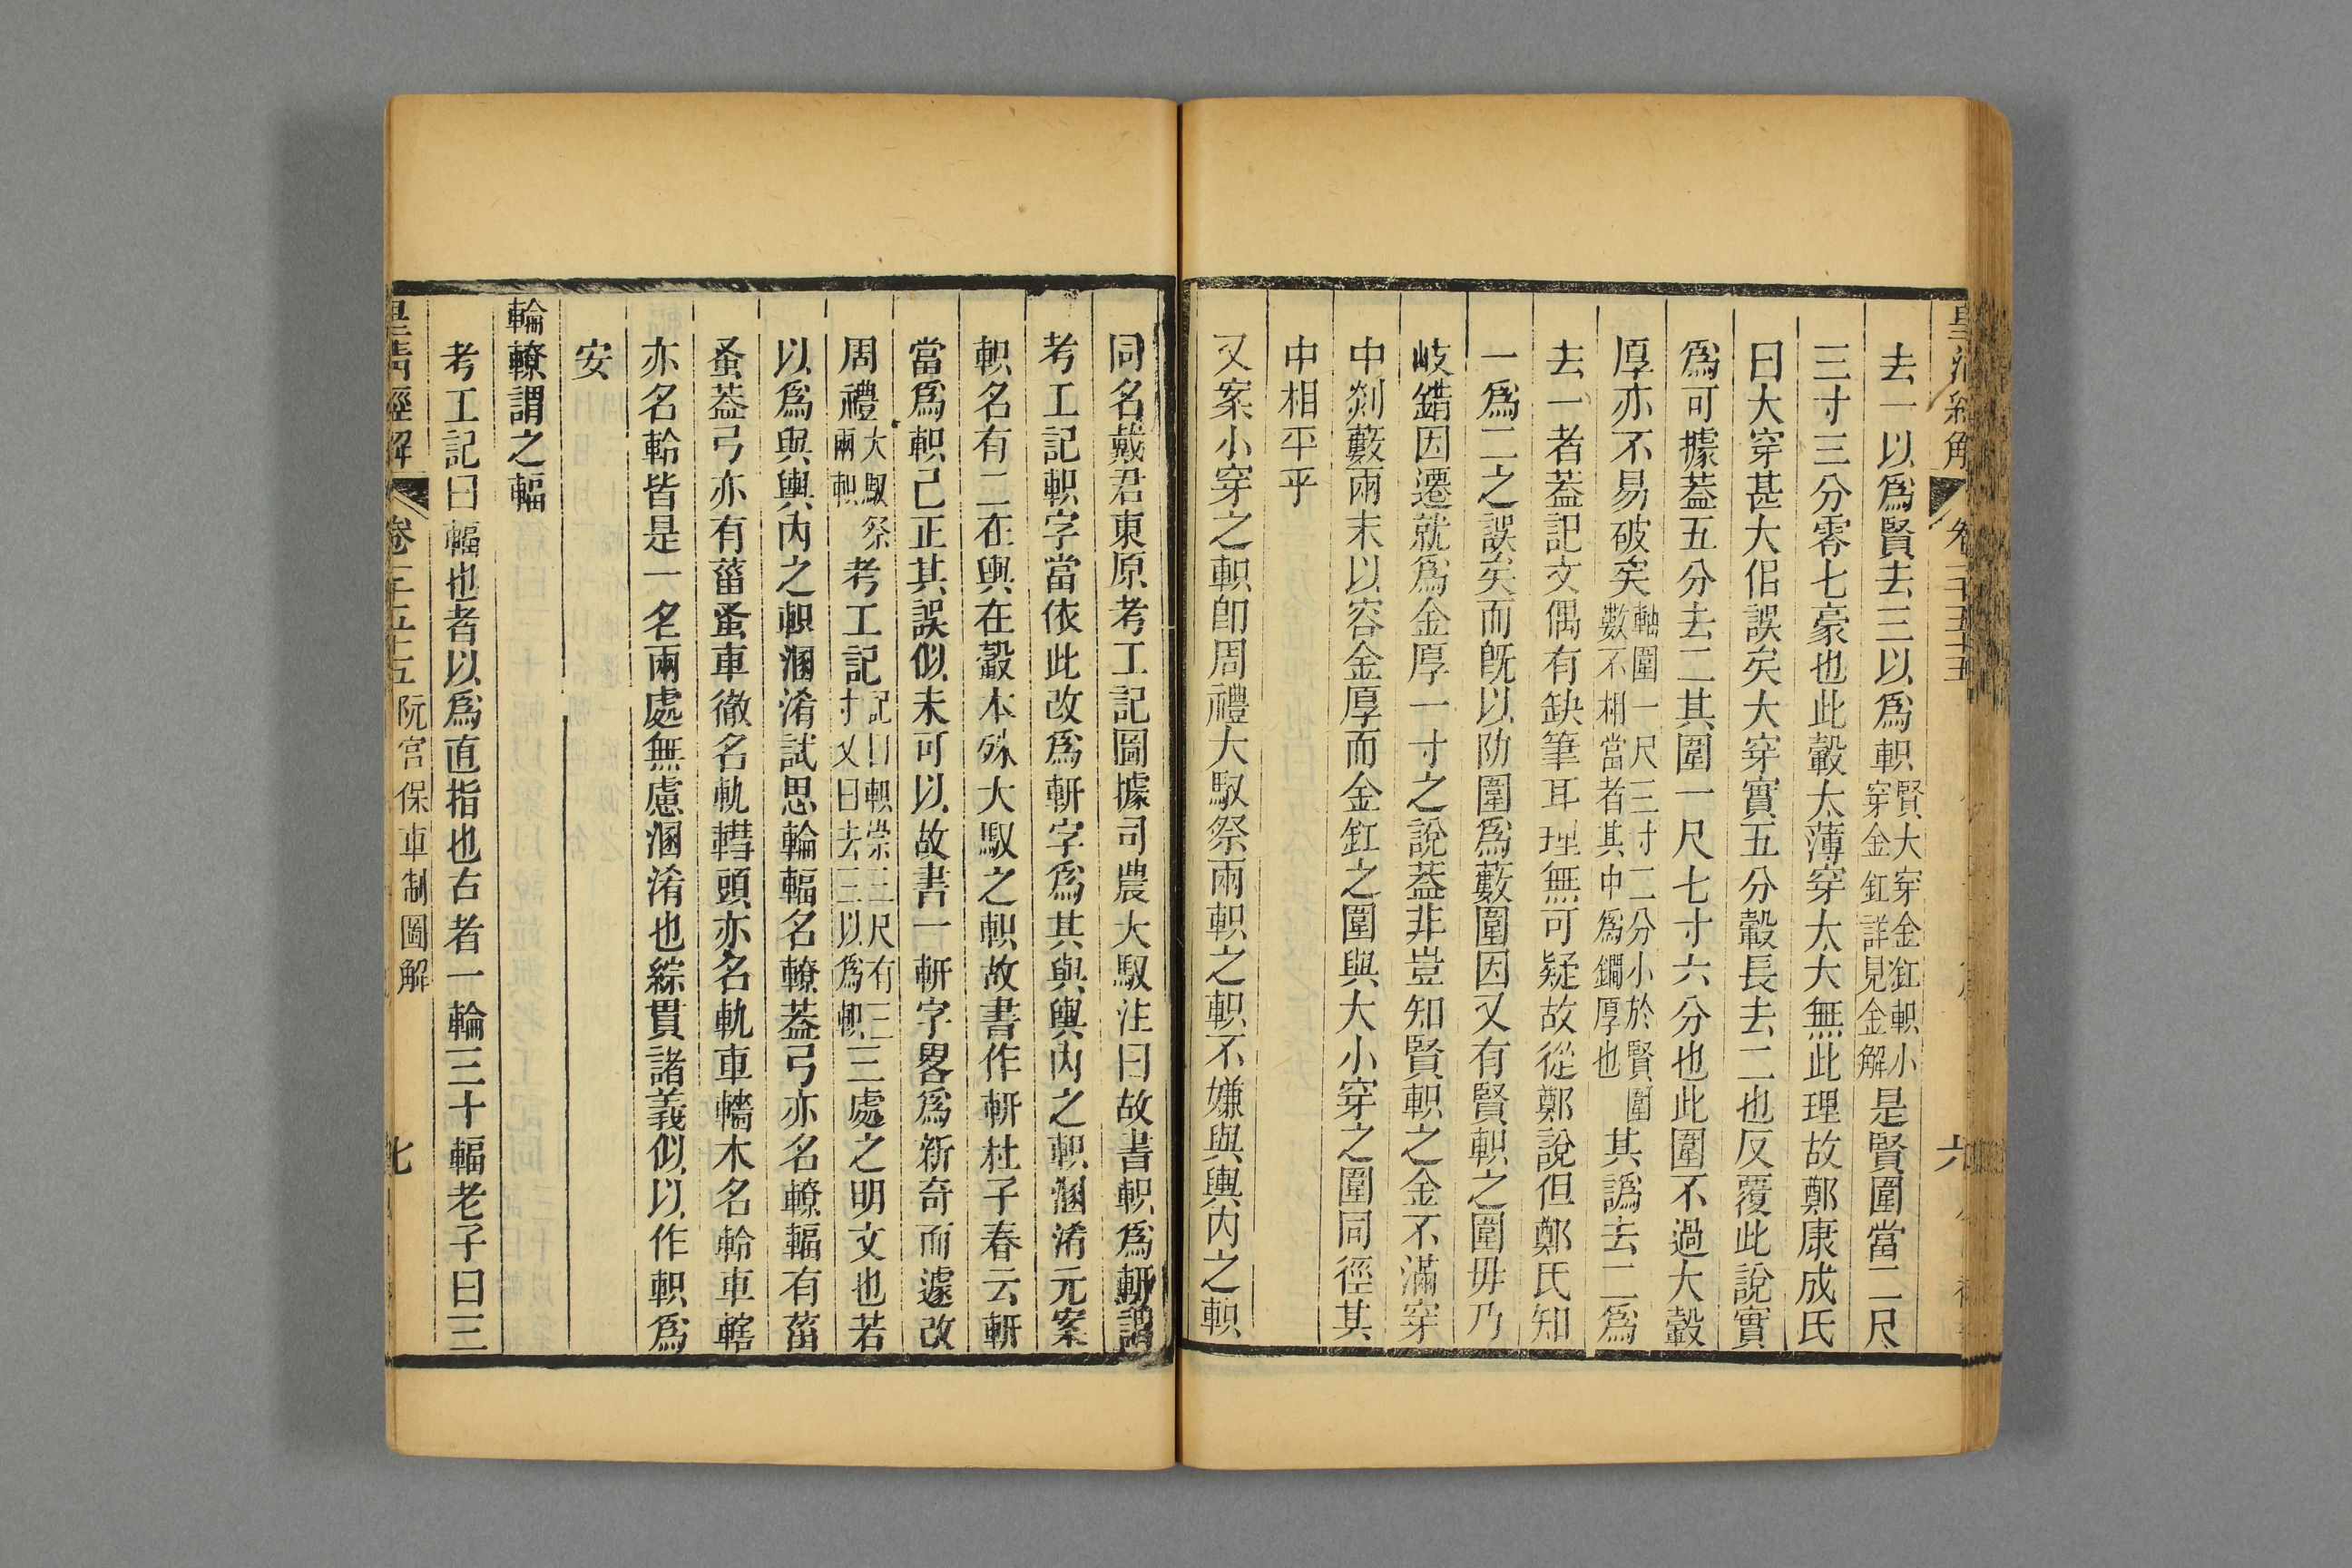 皇清經解
卷一千五十五
六
去一以爲賢去三以爲軹賢大穿金釭軹小穿金釭詳見金解是賢圍當二尺
三寸三分零七豪也此轂太薄穿太大無此理故鄭康成氏
曰大穿甚大佀誤矣大穿實五分轂長去二也反覆此說實
爲可據葢五分去二其圍一尺七寸六分也此圍不過大轂
厚亦不易破矣軸圍一尺三寸二分小於賢圍數不相當者其中爲鐗厚也其譌去二爲
去一者葢記文偶有缺筆耳理無可疑故從鄭說但鄭氏知
一爲二之誤矣而旣以防圍爲藪圍因又有賢軹之圍毋乃
岐錯因遷就爲金厚一寸之說葢非豈知賢軹之金不滿穿
中剡藪兩末以容金厚而金釭之圍與大小穿之圍同徑其
中相平乎
又案小穿之軹卽周禮大馭祭兩軹之軹不嫌與輿內之軹
同名戴君東原考工記圖據司農大馭注曰故書軹爲軒謂
考工記軹字當依此改爲軒字爲其與輿內之軹溷淆元案
軹名有二在輿在轂本殊大馭之軹故書作軒杜子春云軒
當爲軹己正其誤似未可以故書一軒字畧爲新奇而遽改
周禮大馭祭兩軹考工記記曰軹崇三尺有三寸又曰去三以爲軹三處之明文也若
以爲與輿內之軹溷淆試思輪輻名轑葢弓亦名轑輻有菑
蚤葢弓亦有菑蚤車徹名軌轊頭亦名軌車轖木名軨車轄
亦名軨皆是一名兩處無慮溷淆也綜貫諸義似以作軹爲
安
輪轑謂之輻
考工記曰輻也者以爲直指也古者一輪三十輻老子曰三
皇清經解
卷一千五十五阮宮保車制圖解
七